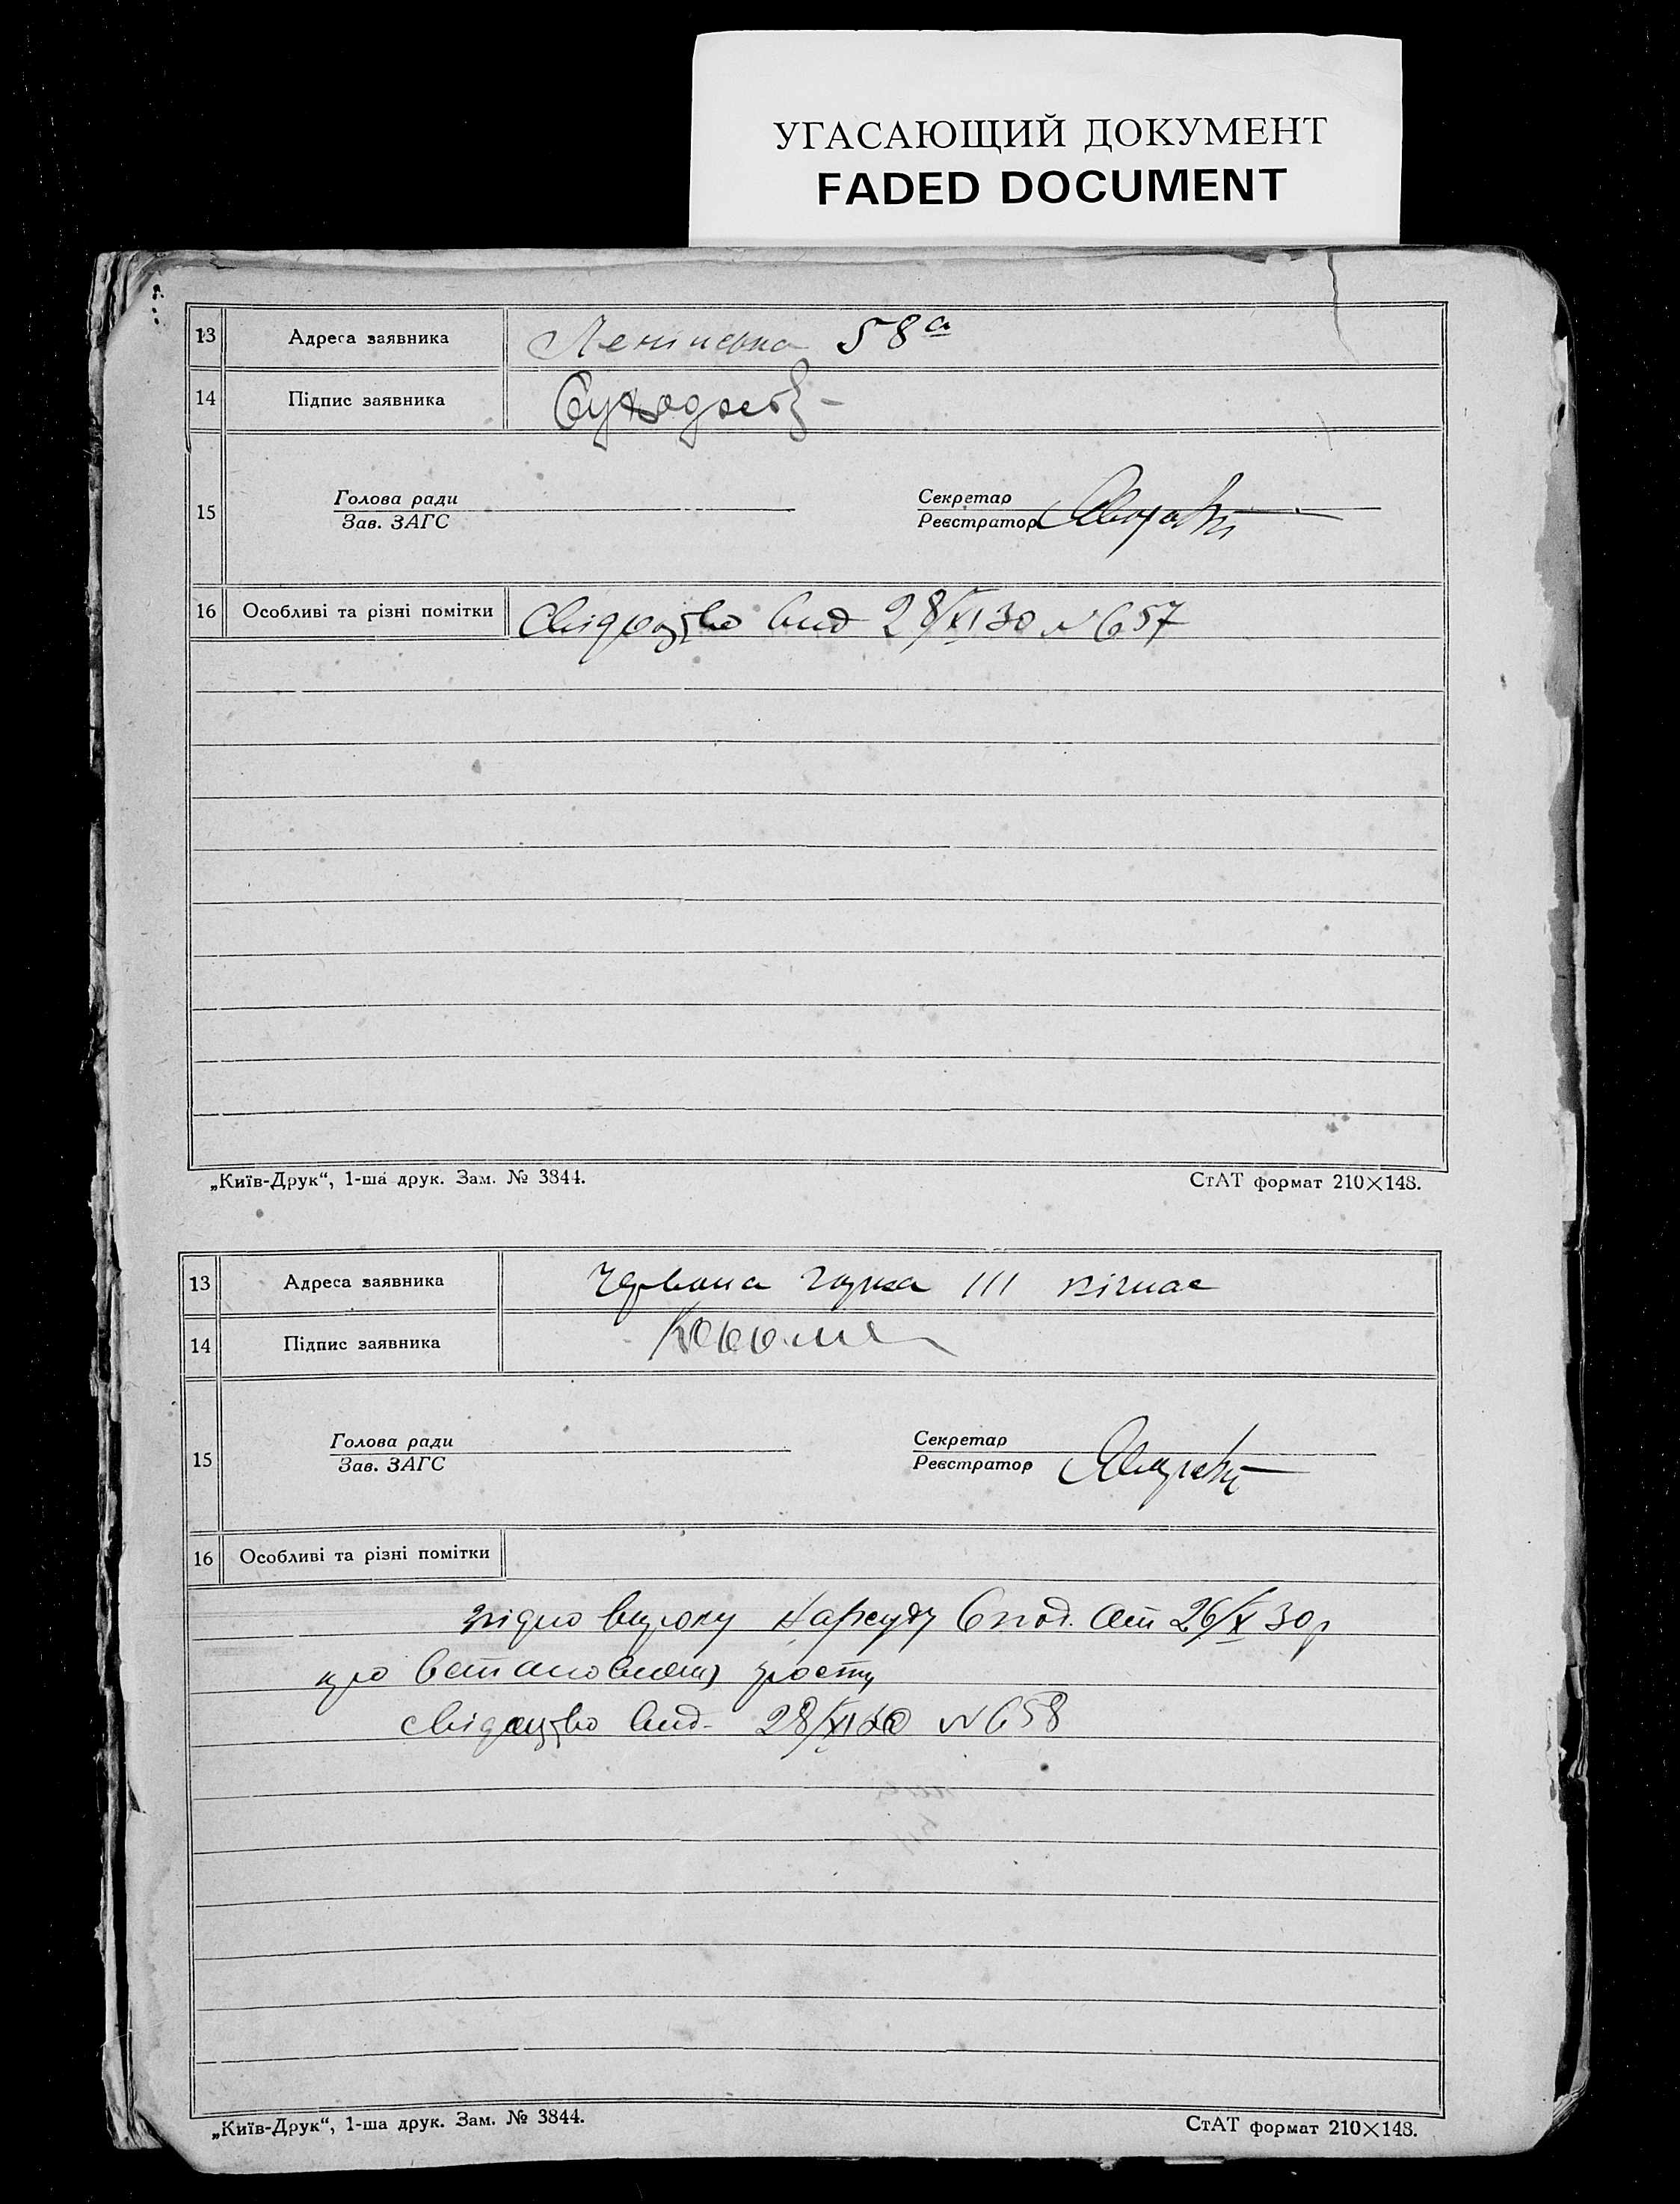 УГАСАЮЩИЙ ДОКУМЕНТ
FADED DOCUMENT
13 Адреса заявника Ленінська 58а
14 Підпис заявника
15 Голова ради Секретар
Зав. ЗАГС Реєстратор
16 Особливі та різні помітки Свідоцтво вид 28/XI 30 N 657
„Київ-Друк“, 1-ша друк. Зам. № 3844. СтАТ формат 210×148.
13 Адреса заявника Червона III
14 Підпис заявника
15 Голова ради Секретар
Зав. ЗАГС Реєстратор
16 Особливі та різні помітки
згідно вироку Нарсуду 26/X 30р
про встановлення
свідоцтво вид. 28/XI 30 N 658
„Київ-Друк“, 1-ша друк. Зам. № 3844. СтАТ формат 210×148.